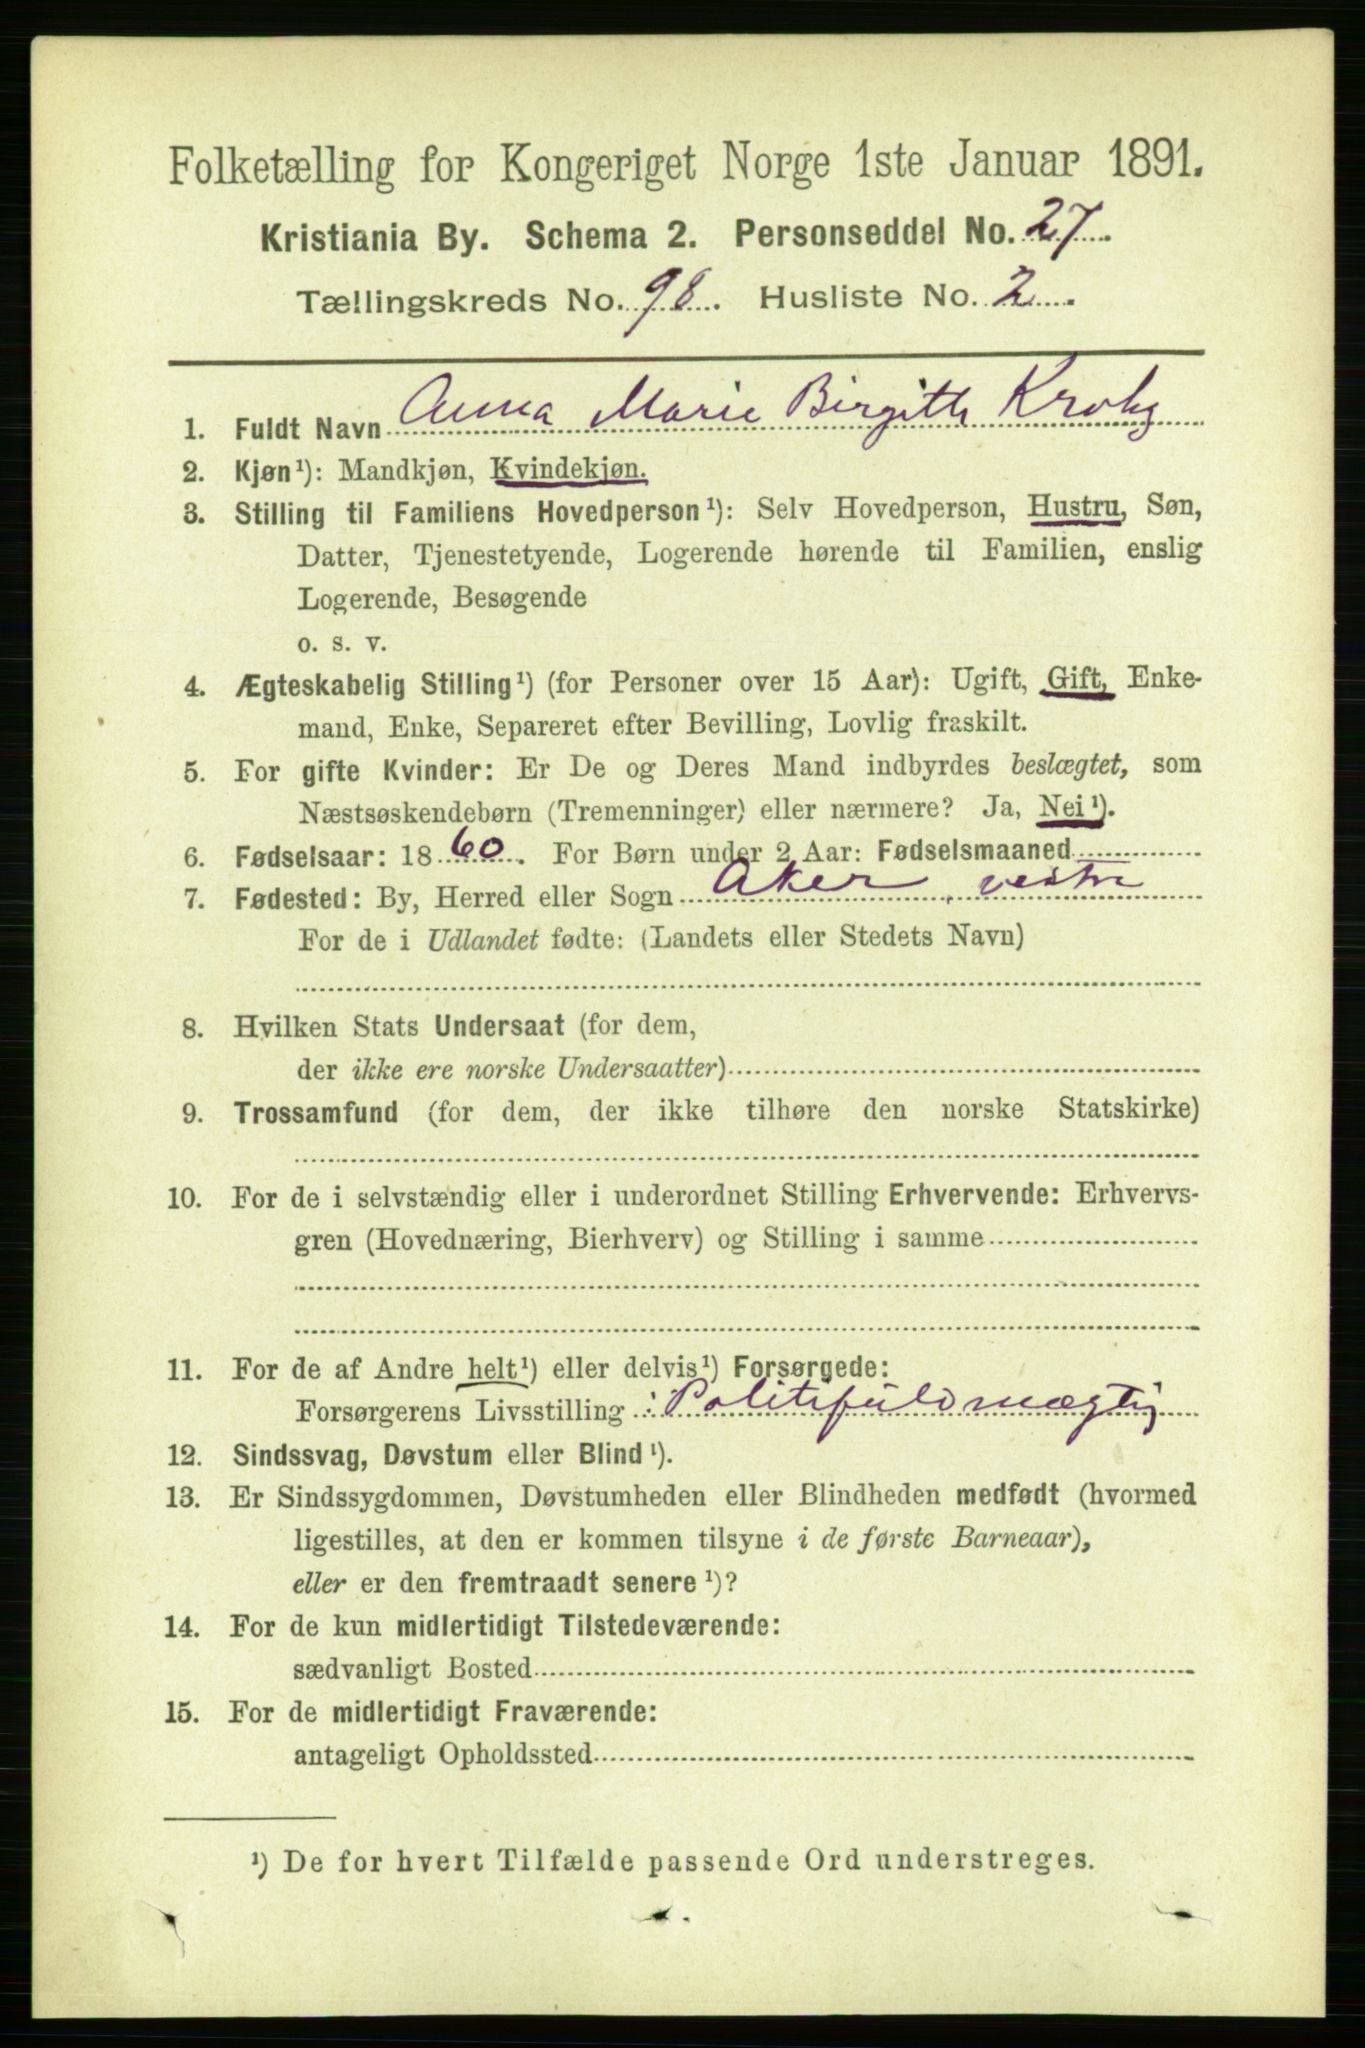 Folketælling for Kongeriget Norge 1ste Januar 1891.
Kristiania By. Schema 2. Personseddel No. 27.
Tællingskreds No. 98. Husliste No. 2.
1. Fuldt Navn Anna Marie Birgitte Krohg
2. Kjøn¹): Mandkjøn, Kvindekjøn.
3. Stilling til Familiens Hovedperson¹): Selv Hovedperson, Hustru, Søn,
Datter, Tjenestetyende, Logerende hørende til Familien, enslig
Logerende, Besøgende
o. s. v.
4. Ægteskabelig Stilling¹) (for Personer over 15 Aar): Ugift, Gift, Enke-
mand, Enke, Separeret efter Bevilling, Lovlig fraskilt.
5. For gifte Kvinder: Er De og Deres Mand indbyrdes beslægtet, som
Næstsøskendebørn (Tremenninger) eller nærmere? Ja, Nei¹).
6. Fødselsaar: 1860. For Børn under 2 Aar: Fødselsmaaned
7. Fødested: By, Herred eller Sogn Aker, vestre
For de i Udlandet fødte: (Landets eller Stedets Navn)
8. Hvilken Stats Undersaat (for dem,
der ikke ere norske Undersaatter)
9. Trossamfund (for dem, der ikke tilhøre den norske Statskirke)
10. For de i selvstændig eller i underordnet Stilling Erhvervende: Erhvervs-
gren (Hovednæring, Bierhverv) og Stilling i samme
11. For de af Andre helt¹) eller delvis¹) Forsørgede:
Forsørgerens Livsstilling : Politifuldmægtig
12. Sindssvag, Døvstum eller Blind¹).
13. Er Sindssygdommen, Døvstumheden eller Blindheden medfødt (hvormed
ligestilles, at den er kommen tilsyne i de første Barneaar),
eller er den fremtraadt senere¹)?
14. For de kun midlertidigt Tilstedeværende:
sædvanligt Bosted
15. For de midlertidigt Fraværende:
antageligt Opholdssted
¹) De for hvert Tilfælde passende Ord understreges.